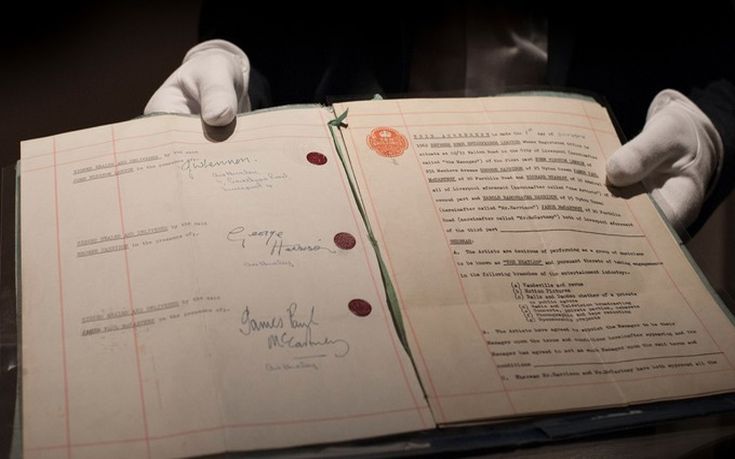 SIGNED SEALED AND DELIVERED by the said
JOHN WINSTON LENNON in the presence of:-
JWLennon.
SIGNED SEALED AND DELIVERED by the said
GEORGE HARRISON in the presence of:-
George
Harrison
SIGNED SEALED AND DELIVERED by the said
JAMES PAUL McCARTNEY in the presence of:-
James Paul
McCartney
THIS AGREEMENT is made the 1st day of October
1962 BETWEEN NEMS ENTERPRISES LIMITED whose Registered Office is
situate at 12/14 Walton Road in the City of Liverpool (hereinafter
called "the Manager") of the first part JOHN WINSTON LENNON of
251 Menlove Avenue GEORGE HARRISON of 25 Upton Green JAMES PAUL
McCARTNEY of 20 Forthlin Road and RICHARD STARKEY of 10 Admiral
all of Liverpool aforesaid (hereinafter called "the Artists") of the
second part and HAROLD HARGREAVES HARRISON of 25 Upton Green
(hereinafter called "Mr.Harrison") JAMES McCARTNEY of 20 Forthlin
Road (hereinafter called "Mr.McCartney") both of Liverpool aforesaid
of the third part
WHEREAS:
A. The Artists are desirous of performing as a group of musicians
to be known as "THE BEATLES" and pursuant thereto of taking engagements
in the following branches of the entertainment industry:-
(a) Vaudeville and revue
(b) Motion Pictures
(c) Balls and Dances whether of a private
or public nature
(d) Radio and Television broadcasting
(e) Concerts, private parties, cabarets
(f) Phonographic and tape recording
(g) Sponsorship projects
B. The Artists have agreed to appoint the Manager to be their
Manager upon the terms and conditions hereinafter appearing and the
Manager has agreed to act as such Manager upon the said terms and
conditions
C. Whereas Mr.Harrison and Mr.McCartney have both approved all the